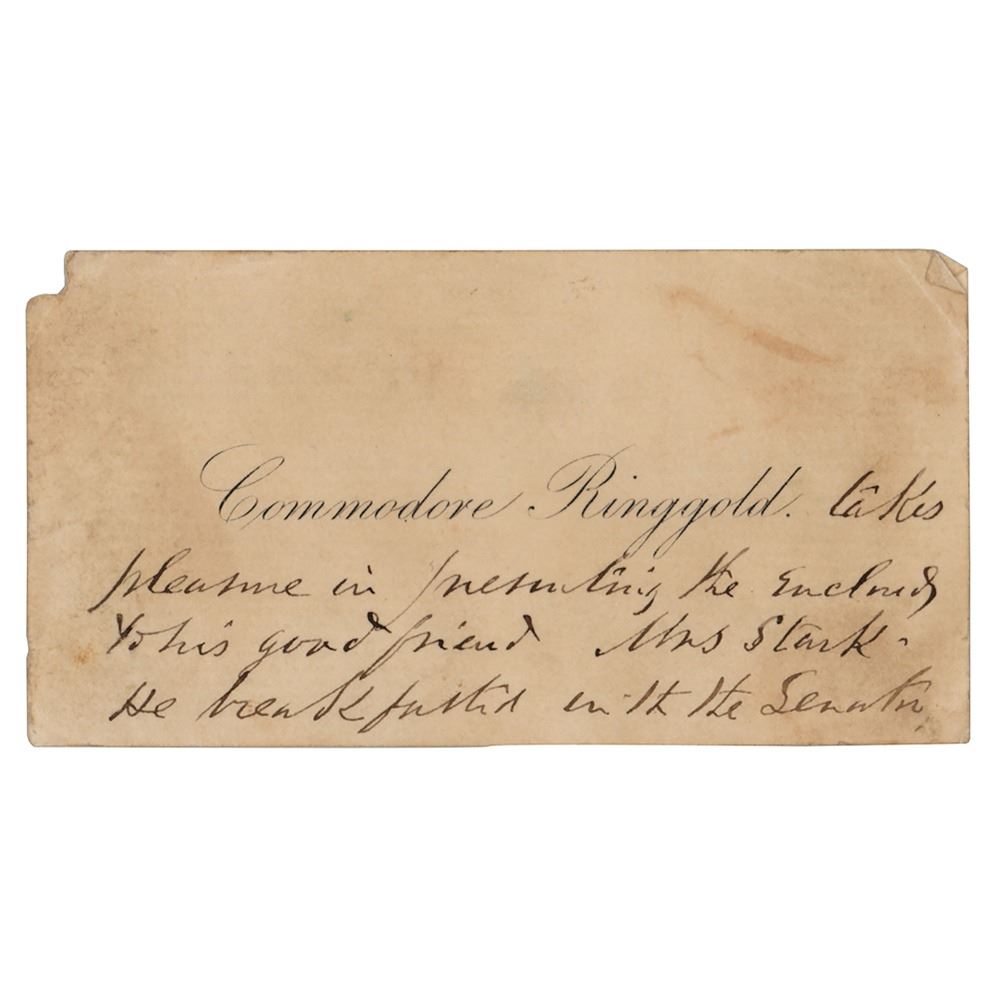 Commodore Ringgold. takes
pleasure in presenting the enclosed
to his good friend Mrs Stark.
He breakfasted with the Senator